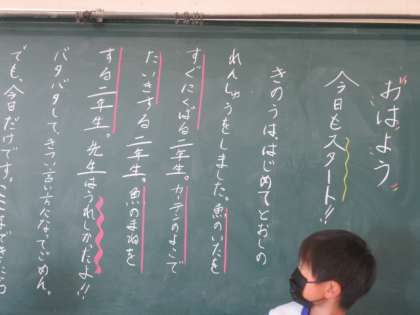 おはよう
今日もスタート!!
きのうは、はじめてとおしの
れんしゅうをしました。魚のいたを
すぐにくばる二年生。カーテンのよこで
たいきする二年生。魚のまねを
する二年生。先生はうれしかったよ!!
バタバタして、きつい言い方になってごめん。
でも、今日だけです。ここまでできたら